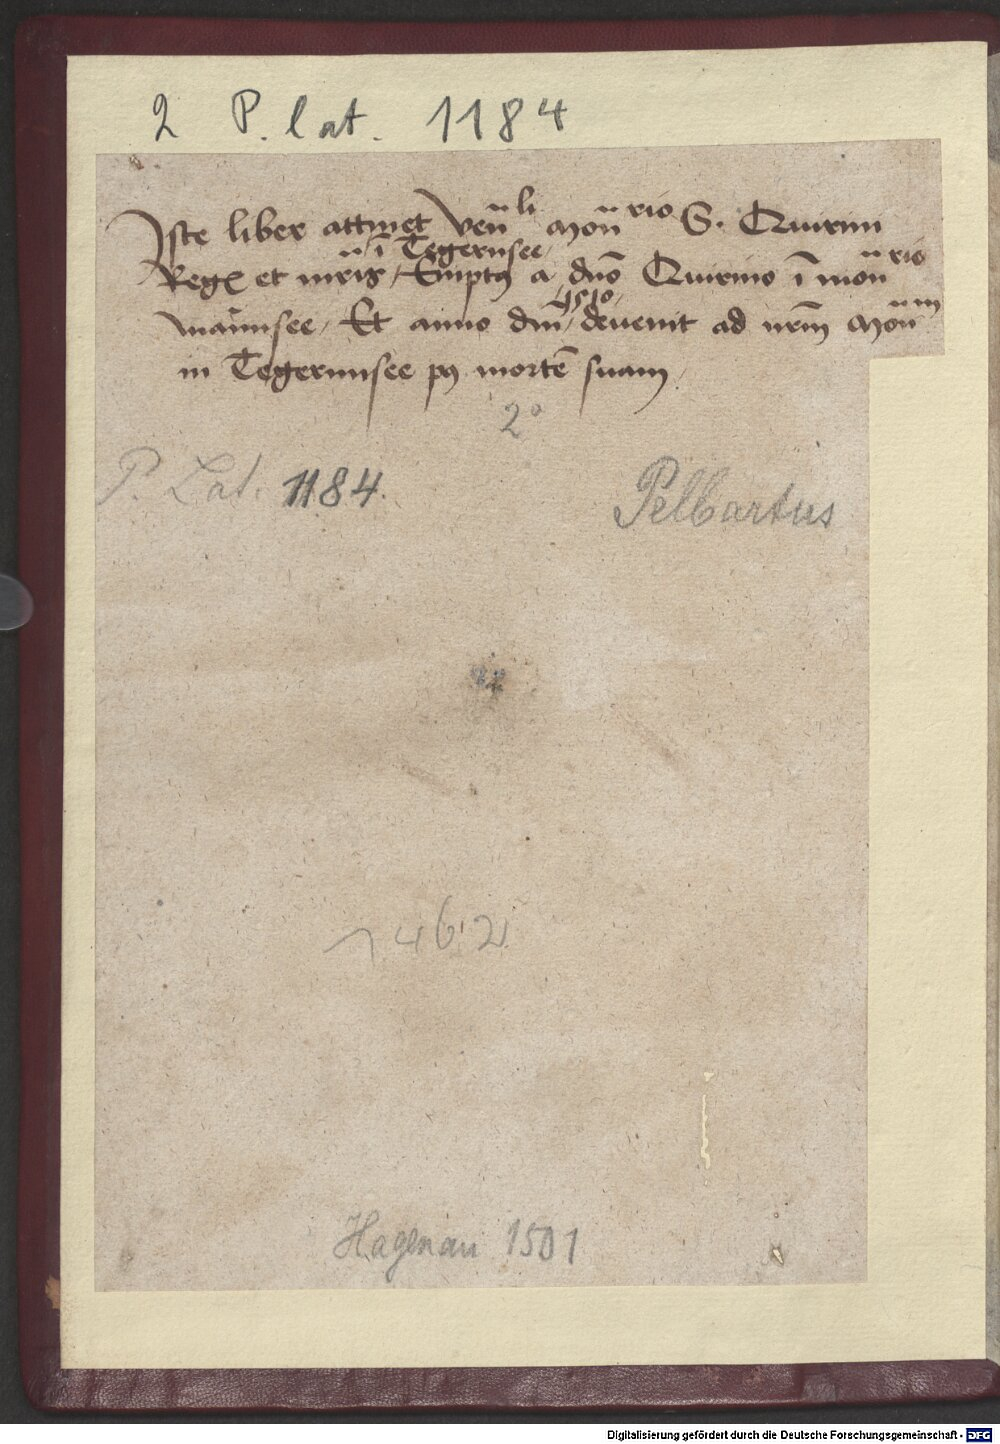 2 P. lat. 1184
Iste liber attinet Ven̄li Mon̄rio S. Quirini
Reg. et m̄ris ī Tegernsee, Empt9 a dn̄o Quirino ī mon̄rio
mānnsee, Et anno dn̄i 1510, devenit ad nr̄m Mon̄m
in Tegernnsee p9 mortē suam.
2°
P. Lat. 1184.
Pelbartus
1462
Hagenau 1501
Digitalisierung gefördert durch die Deutsche Forschungsgemeinschaft - DFG